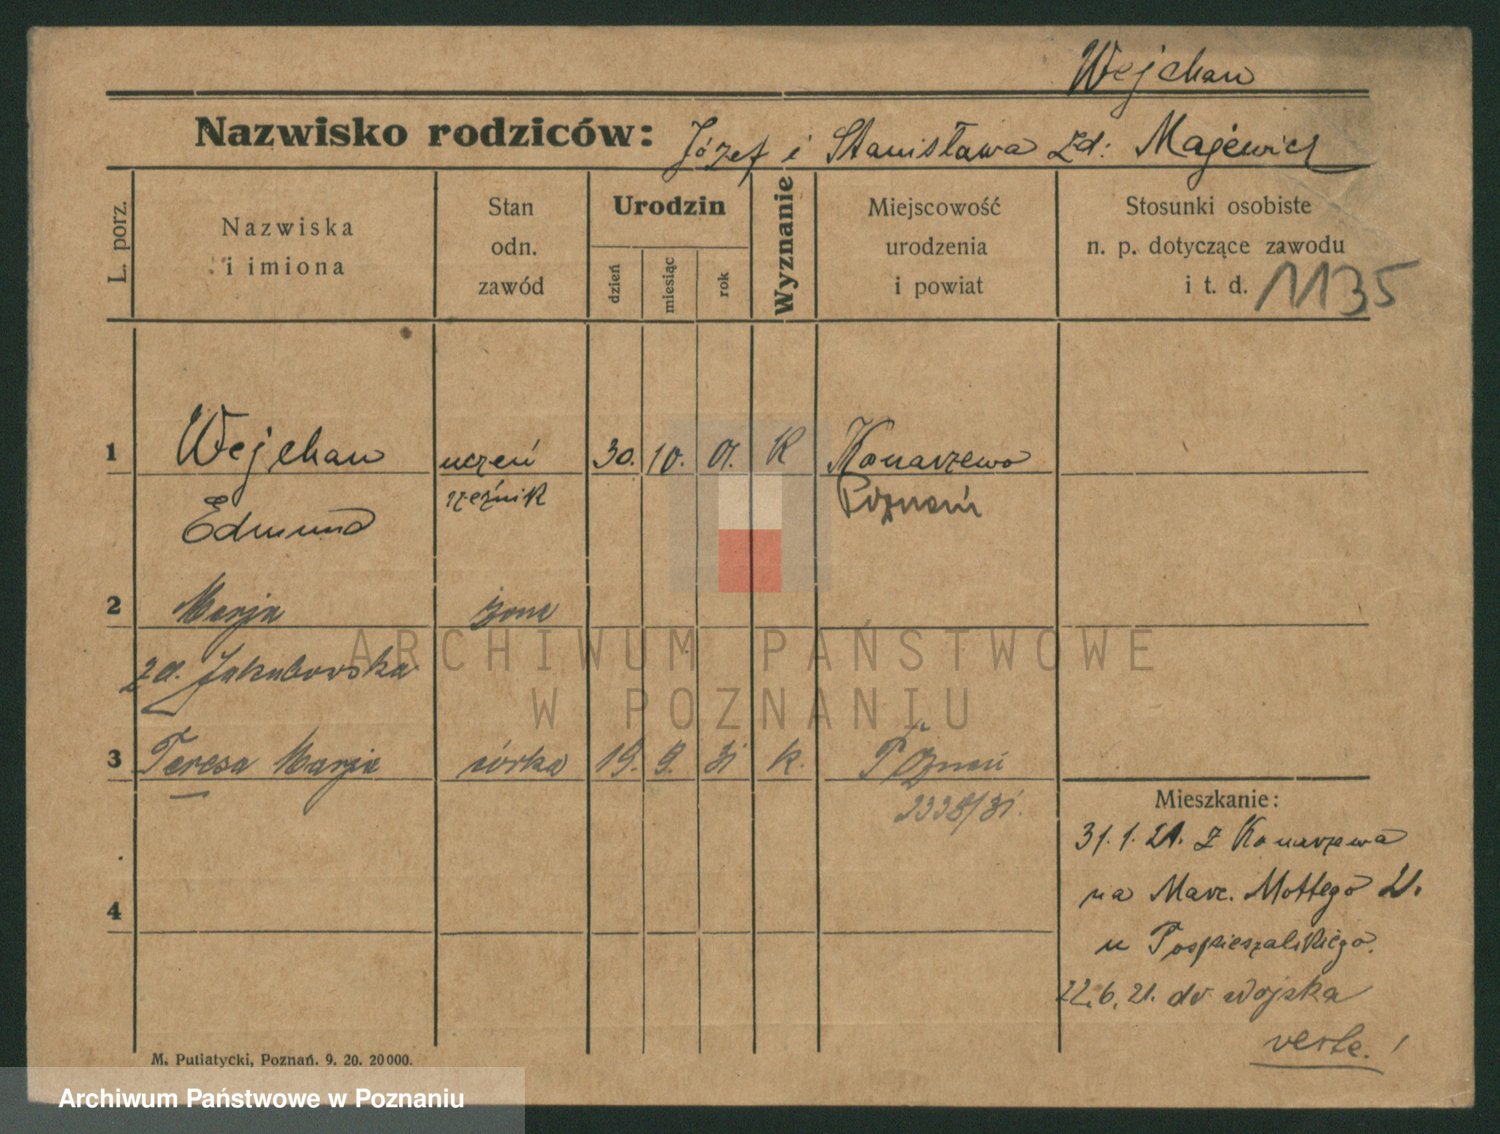 Wejchan
Nazwisko rodziców: Józef i Stanisława zd: Majewicz
L. porz.
Nazwiska
i imiona
Stan
odn.
zawód
Urodzin
dzień
miesiąc
rok
Wyznanie
Miejscowość
urodzenia
i powiat
Stosunki osobiste
n. p. dotyczące zawodu
i t. d. 1135
1 Wejchan uczeń 30. 10. 01. K Konarzewo
Edmund rzeźnik Poznań
2 Marja żona
zd. Jakubowska
3 Teresa Marja córka 19. 9. 31 k. Poznań
2338/31.
4
Mieszkanie:
31.1.21. z Konarzewa
na Marc. Mottego 21.
u Pospieszalskiego.
22.6.21. do wojska
verte!
M. Putiatycki, Poznań. 9. 20. 20000.
ARCHIWUM PAŃSTWOWE
W POZNANIU
Archiwum Państwowe w Poznaniu